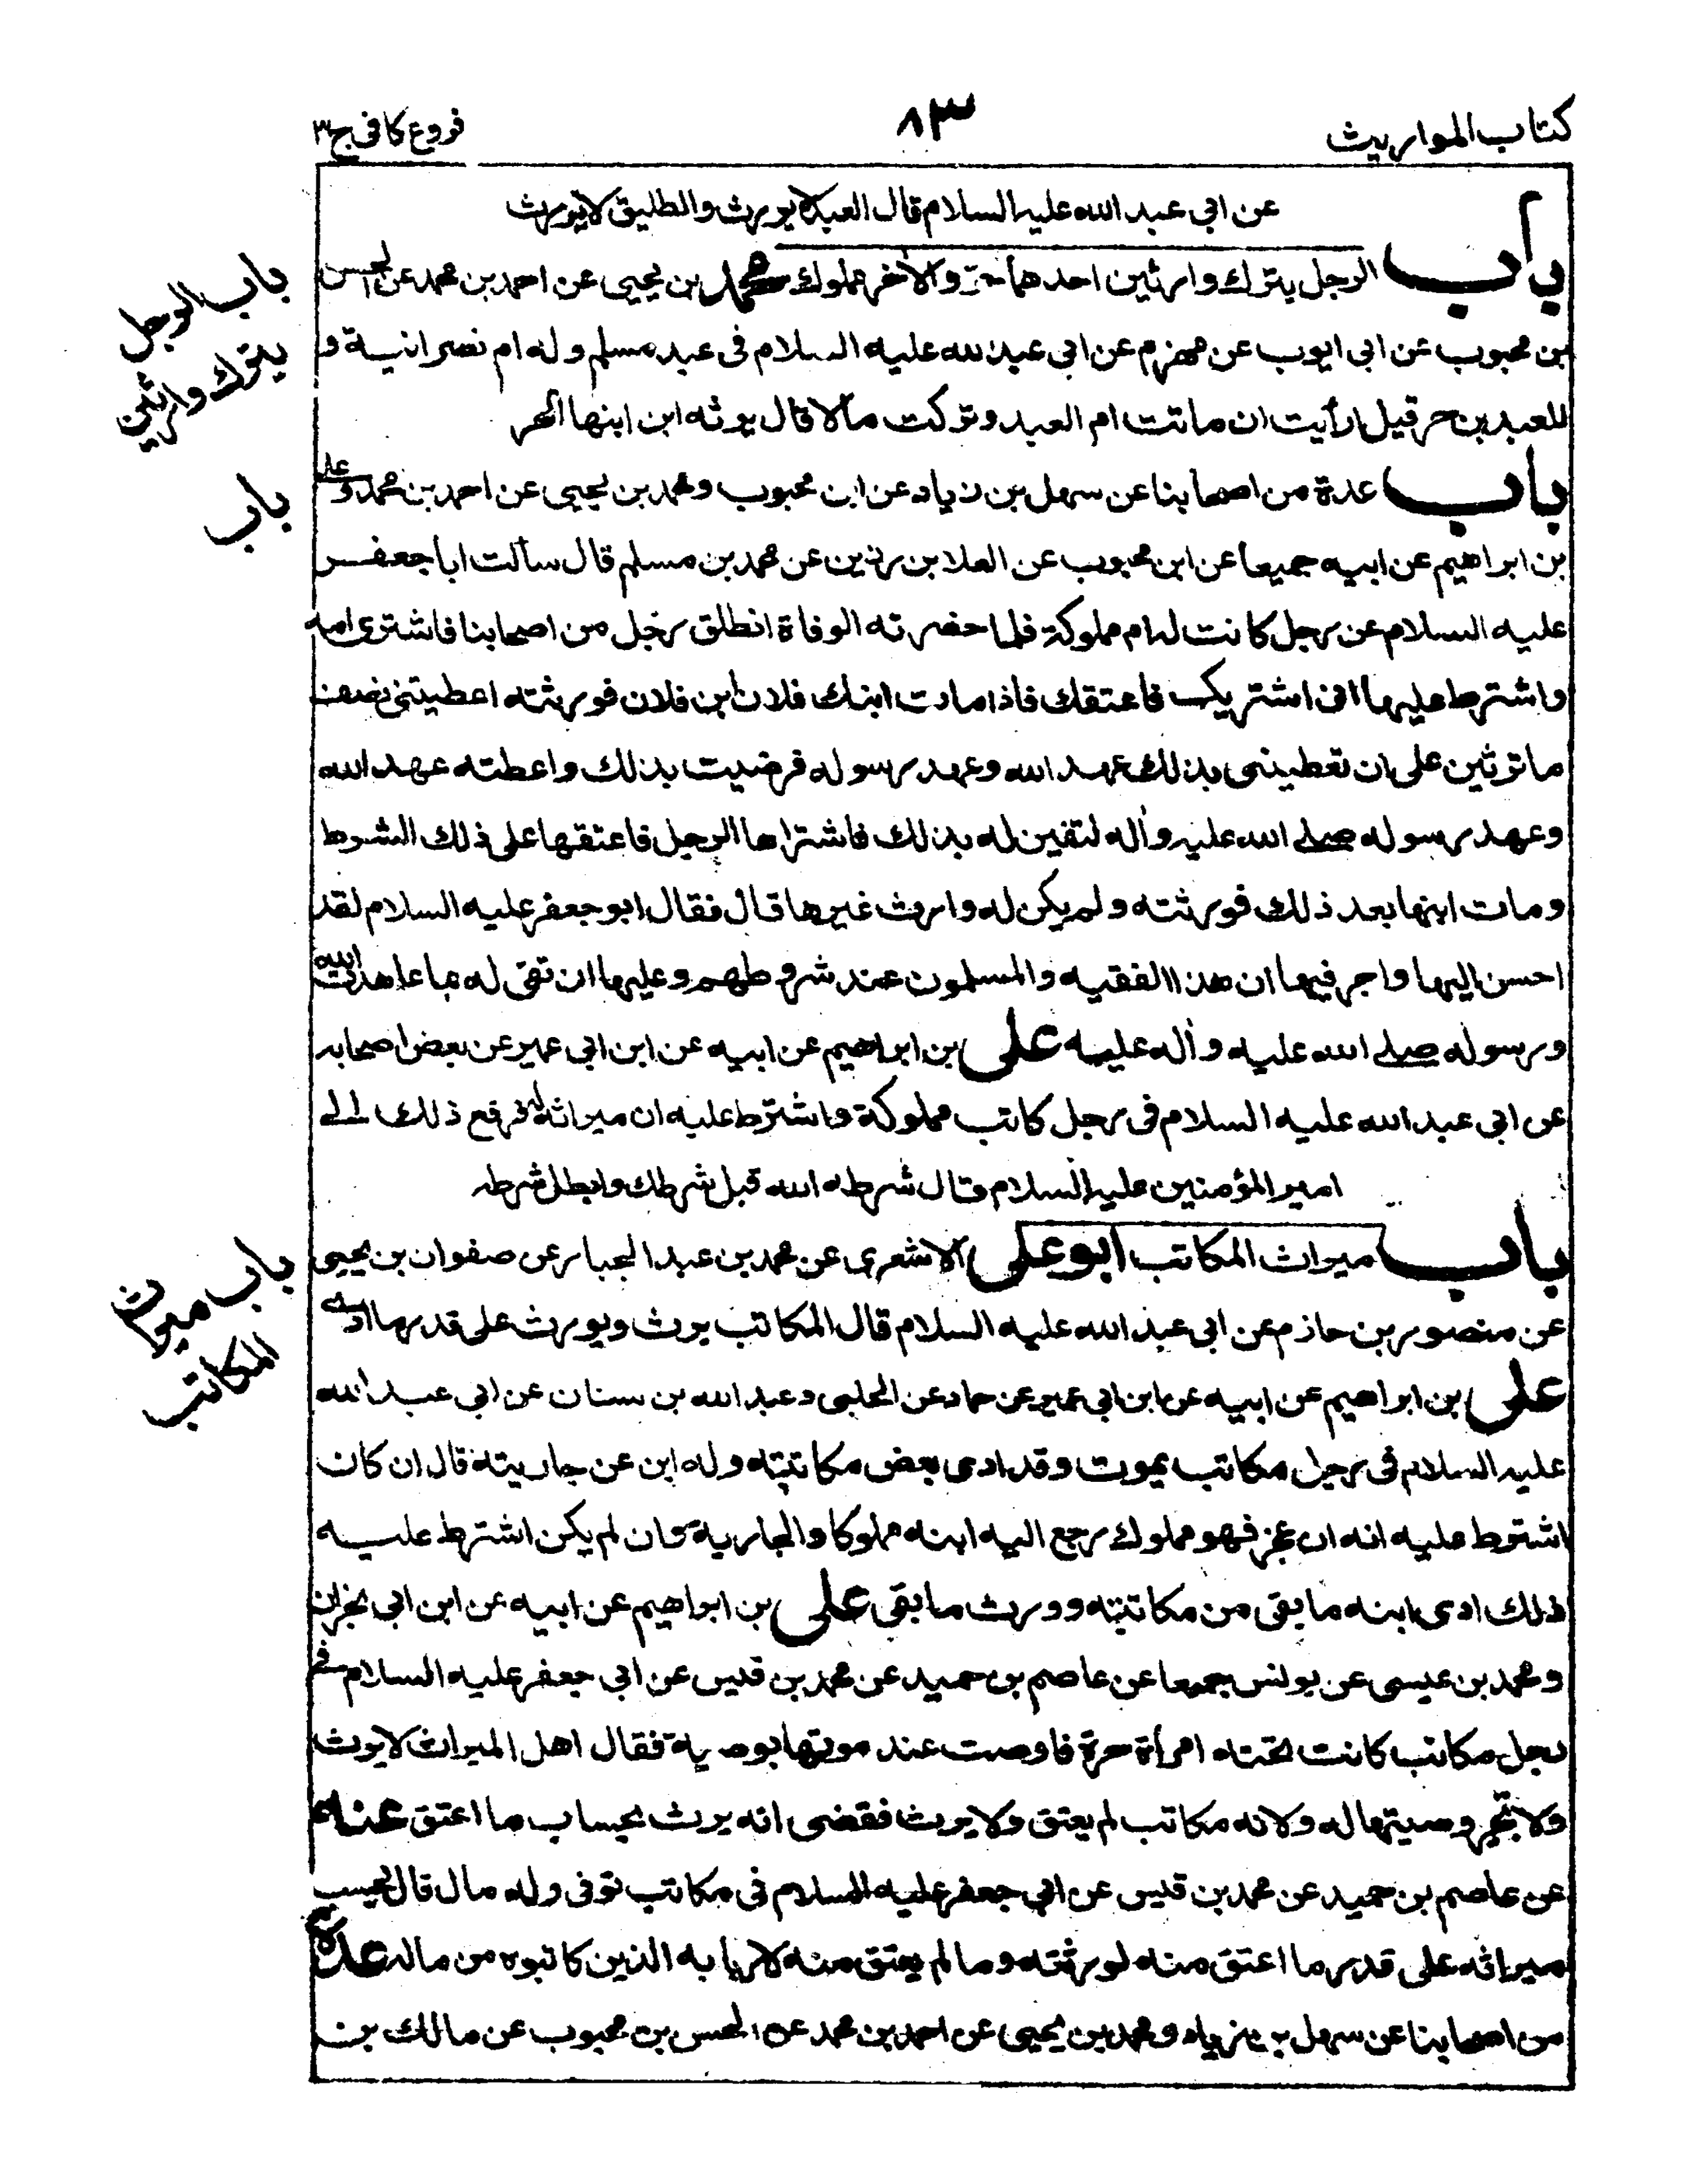 كتاب المواريث
٨٣
فروع كافى ج٣
عن ابي عبد الله عليه السلام قال العبد لا يورث والطليق لا يورث
باب الرجل يترك وارثين احدهما حر والآخر مملوك محمد بن يحيى عن احمد بن محمد عن الحسن
بن محبوب عن ابى ايوب عن مهزم عن ابي عبد الله عليه السلام فى عبد مسلم وله ام نصرانية و
للعبد بن حر قيل ارأيت ان ماتت ام العبد وتركت مالا قال يرثه ابن ابنها الحر
باب عدة من اصحابنا عن سهل بن زياد عن ابن محبوب ومحمد بن يحيى عن احمد بن محمد وعلى
بن ابراهيم عن ابيه جميعا عن ابن محبوب عن العلا بن رزين عن محمد بن مسلم قال سألت ابا جعفر
عليه السلام عن رجل كانت له ام مملوكة فلما حضرته الوفاة انطلق رجل من اصحابنا فاشترى امه
واشترط عليها انى اشتريك فاعتقك فاذا مات ابنك فلان ابن فلان فورثته اعطيتنى نصف
ما ترثين على ان تعطيننى بذلك عهد الله وعهد رسوله فرضيت بذلك واعطته عهد الله
وعهد رسوله صلى الله عليه وآله لتفين له بذلك فاشتراها الرجل فاعتقها على ذلك الشرط
ومات ابنها بعد ذلك فورثته ولم يكن له وارث غيرها قال فقال ابو جعفر عليه السلام لقد
احسن اليها واجر فيها ان هذا الفقيه والمسلمون عند شروطهم وعليها ان تفى له بما عاهدت الله
ورسوله صلى الله عليه وآله عليه على بن ابراهيم عن ابيه عن ابن ابي عمير عن بعض اصحابه
عن ابي عبد الله عليه السلام فى رجل كاتب مملوكة واشترط عليه ان ميراثه له فرفع ذلك الى
امير المؤمنين عليه السلام وقال شرط الله قبل شرطك وابطل شرطه
باب ميراث المكاتب ابو على الاشعرى عن محمد بن عبد الجبار عن صفوان بن يحيى
عن منصور بن حازم عن ابي عبد الله عليه السلام قال المكاتب يرث ويورث على قدر ما ادى
على بن ابراهيم عن ابيه عن ابن ابي عمير عن حماد عن الحلبى وعبد الله بن سنان عن ابي عبد الله
عليه السلام فى رجل مكاتب يموت وقد ادى بعض مكاتبته وله ابن عن جاريته قال ان كان
اشترط عليه انه ان عجز فهو مملوك رجع اليه ابنه مملوكا والجارية وان لم يكن اشترط عليه
ذلك ادى ابنه ما بقى من مكاتبته وورث ما بقى على بن ابراهيم عن ابيه عن ابن ابي نجران
ومحمد بن عيسى عن يونس جميعا عن عاصم بن حميد عن محمد بن قيس عن ابي جعفر عليه السلام فى
رجل مكاتب كانت تحته امرأة حرة فاوصت عند موتها بوصية فقال اهل الميراث لا يرث
ولا تجير وصيتها له ولانه مكاتب لم يعتق ولا يرث فقضى انه يرث بحساب ما اعتق عنه
عن عاصم بن حميد عن محمد بن قيس عن ابي جعفر عليه السلام فى مكاتب توفى وله مال قال يحسب
ميراثه على قدر ما اعتق منه لورثته وما لم يعتق منه لاربابه الذين كاتبوه من ماله عدة
من اصحابنا عن سهل بن زياد ومحمد بن يحيى عن احمد بن محمد عن الحسن بن محبوب عن مالك بن
باب الرجل
يترك وارثين
باب
باب ميراث
المكاتب